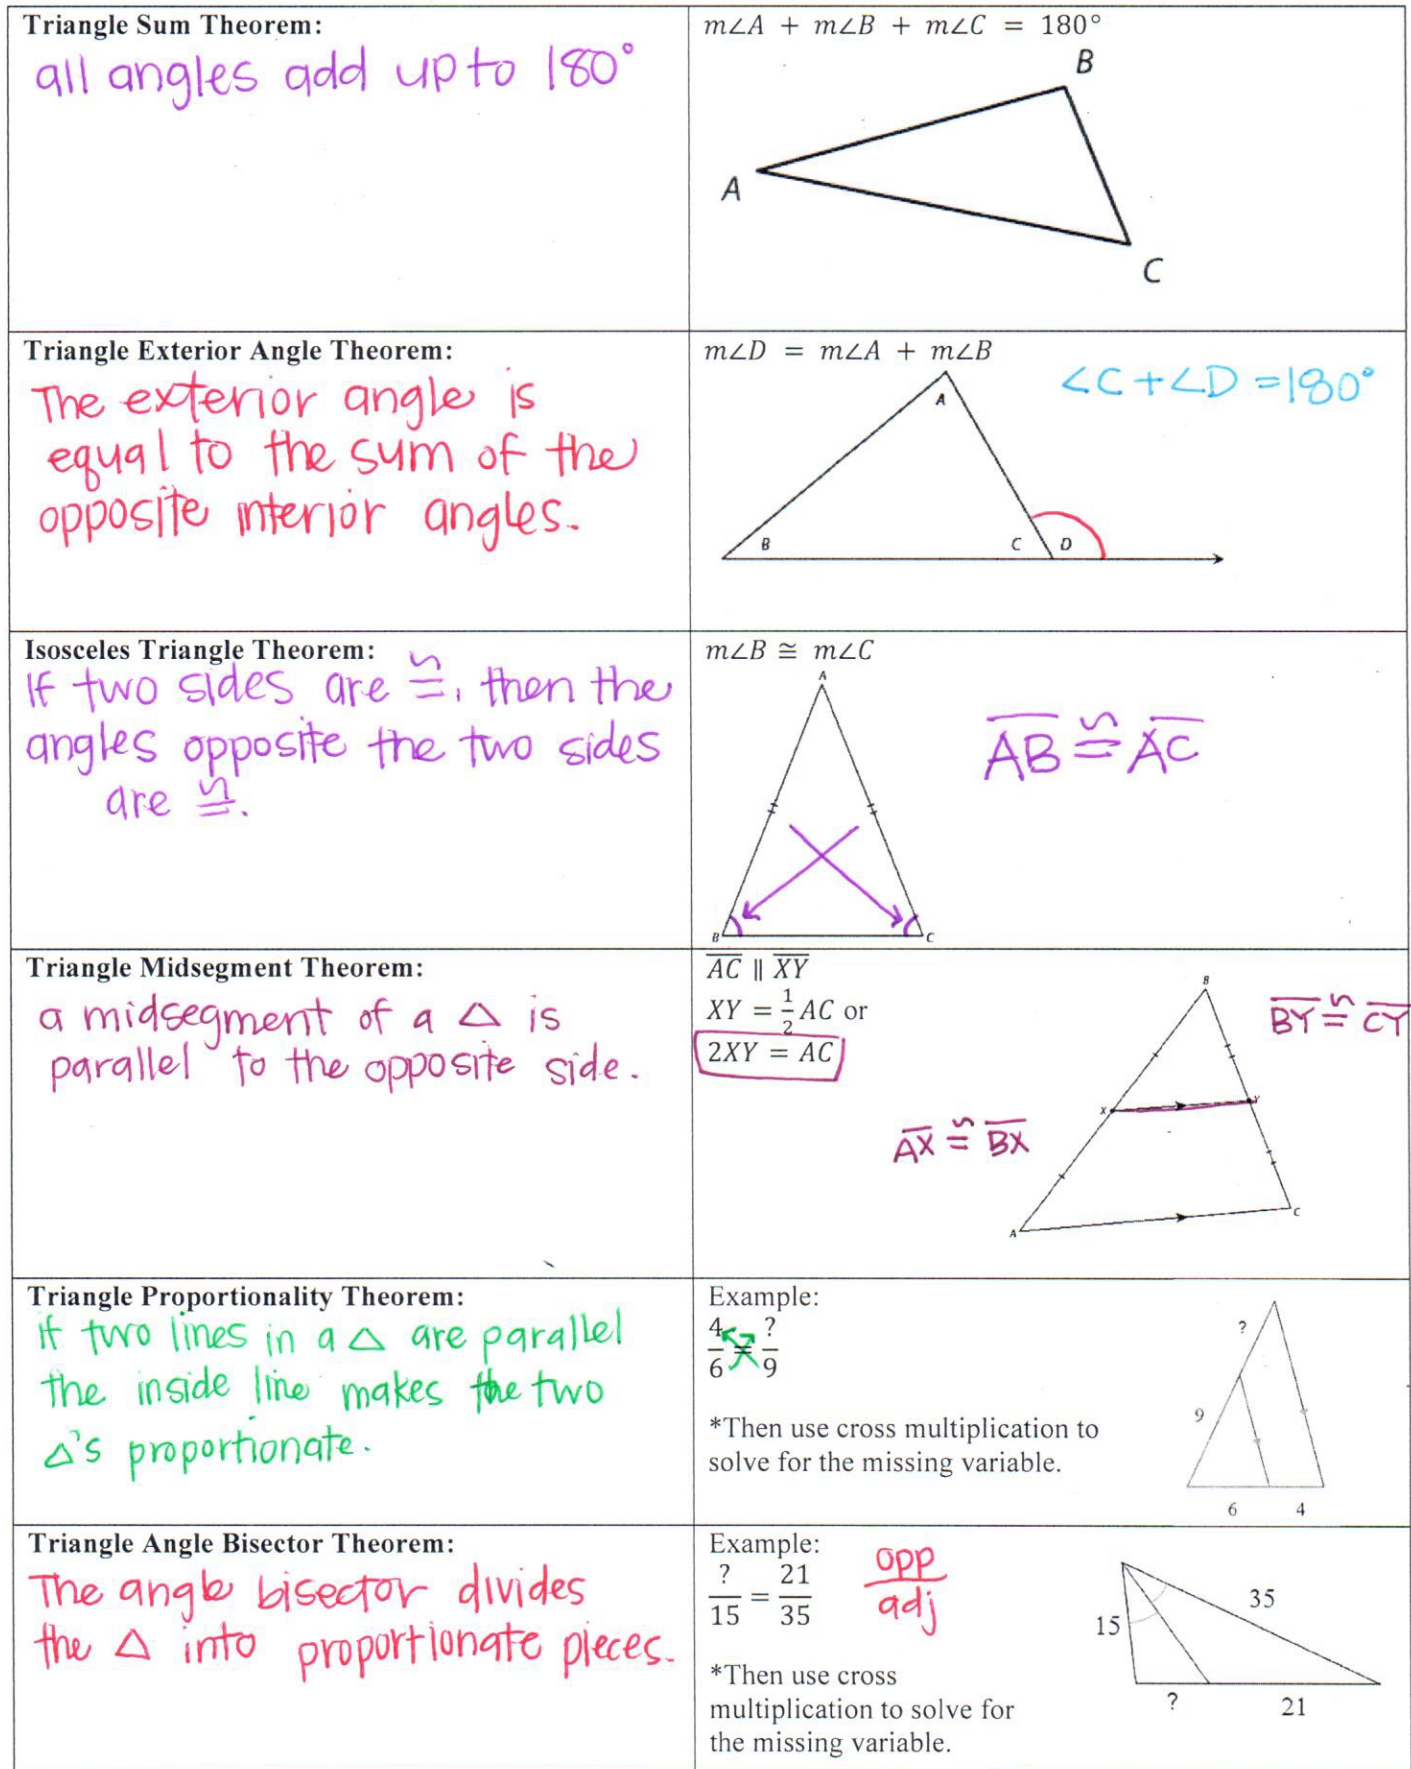 Triangle Sum Theorem:
all angles add up to 180°
m∠A + m∠B + m∠C = 180°
B
A
C
Triangle Exterior Angle Theorem:
The exterior angle is
equal to the sum of the
opposite interior angles.
m∠D = m∠A + m∠B
∠C + ∠D = 180°
A
B
C
D
Isosceles Triangle Theorem:
If two sides are ≅, then the
angles opposite the two sides
are ≅.
m∠B ≅ m∠C
A
A̅B̅ ≅ A̅C̅
B
C
Triangle Midsegment Theorem:
a midsegment of a △ is
parallel to the opposite side.
A̅C̅ ∥ X̅Y̅
XY = 1/2 AC or
2XY = AC
B
B̅Y̅ ≅ C̅Y̅
X
Y
A̅X̅ ≅ B̅X̅
A
C
Triangle Proportionality Theorem:
if two lines in a △ are parallel
the inside line makes the two
△'s proportionate.
Example:
4/6 = ?/9
*Then use cross multiplication to
solve for the missing variable.
?
9
6
4
Triangle Angle Bisector Theorem:
The angle bisector divides
the △ into proportionate pieces.
Example:
?/15 = 21/35
opp/adj
*Then use cross
multiplication to solve for
the missing variable.
35
15
?
21